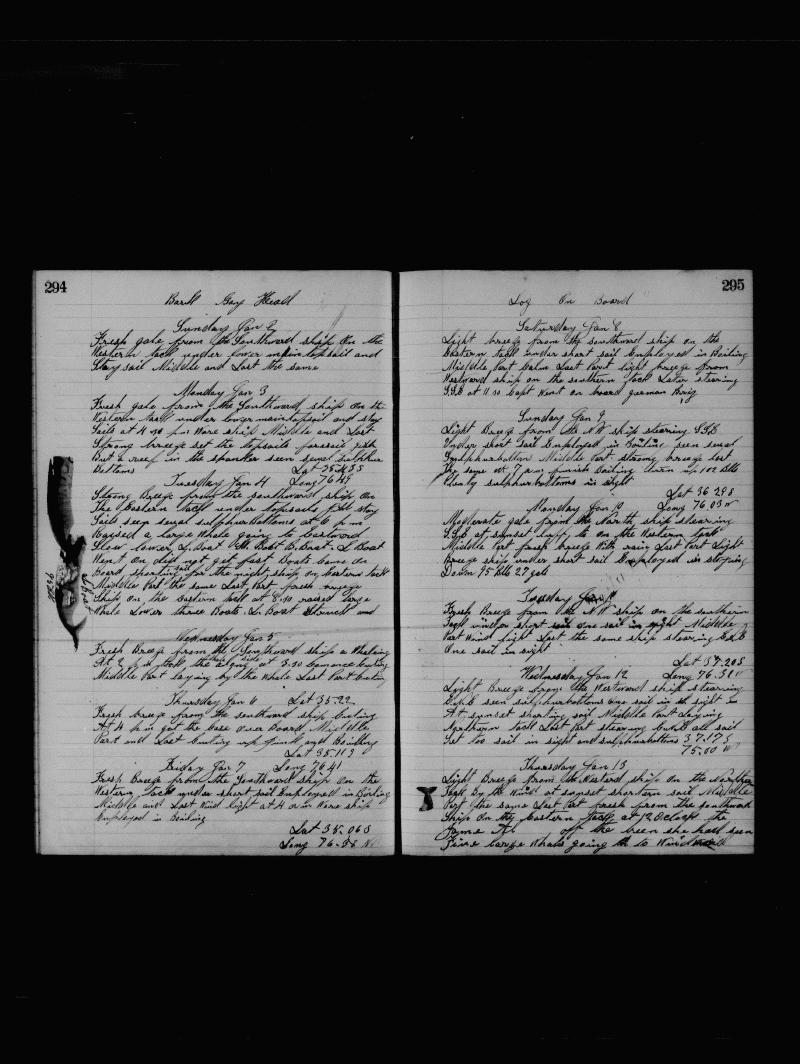 294
Bark Gay Head
Sunday Jan 2
Fresh gale from the Southward ship On the
Western tack under lower main topsail and
Stay sail Middle and Last the same
Monday Jan 3
Fresh gale from the Southward ship on the
Western tack under lower main topsail and stay
Sails at 4 pm Wore ship Middle and Last
Strong breeze set the topsails foresail jib
But a reef in the spanker seen seval sulphur
Bottoms Lat 35.43 S
Tuesday Jan 4 Long 76 49
Strong Breeze from the southward ship on
The Eastern tack under topsails jib stay
Sails seen seval sulphurbottoms at 6 pm
Raised a large Whale going to Eastward
Slow lower L. Boat W. Boat B. Boat. L Boat
Went on did not get fast Boats came on
Board shorting sail for the night ship on Eastern tack
Middle Part the same Last Part fresh
Ship on the Eastern tack at 8.10 raised large
Whale Lower three Boats. L. Boat Struck and
Wednesday Jan 5
Fresh Breeze from the Southward ship a Whaling
At 2 pm took the whale along side at 3.30 comance cuting
Middle Part laying by the Whale Last Part Cuting
Thursday Jan 6 Lat 35.22
Fresh breeze from the southward ship cuting
At 4 pm got the Case over Board Middle
Part and Last cuting up junk and Boiling
Lat 35.11 S
Friday Jan 7 Long 76 41
Fresh Breeze from the Southward ship On the
Western tack under short sail Employed in Boiling
Middle and Last Wind light at 4 am Wore ship
Employed in Boiling
Lat 35.06 S
Long 76.38 W
295
Log On Board
Saturday Jan 8
Light breeze from the southward ship on the
Eastern tack under short sail Employed in Boiling
Middle Part Calm Last Part light breeze from
Westward ship on the southern tack Later steering
S.S.E at 11 30 Capt Went on board german Brig
Sunday Jan 9
Light Breeze from the NW ship steering S.S.E
Under short sail Employed in Boiling seen seval
Sulphurbottom Middle Part strong breeze last
the same at 7 pm finish Boiling turn up 100 Bbls
Plenty sulphurbottoms in sight
Lat 36 29 S
Monday Jan 10 Long 76.03 W
Moderate gale from the North ship steering
S.S.E at sunset luff to on the Western tack
Middle Part fresh breeze With rain Last Part Light
Breeze ship under short sail Employed in stoping
Down 95 Bbls 27 gals
Tuesday Jan 11
Fresh Breeze from the NW ship on the southern
Tack under short sail one sail in sight Middle
Part Wind light Last the same ship steering
One sail in sight
Lat 37.20 S
Wednesday Jan 12 Long 76.30 W
Light Breeze from the Westward ship steering
seen sulphurbottoms one sail in sight
At sunset shorting sail Middle Part Laying
Northern tack Last Part steering all sail
Set too sail in sight and sulphurbottoms 37.17 S
75.00 W
Thursday Jan 13
Light Breeze from the Westard ship on the Northern
Tack by the Wind at sunset shortern sail Middle
Part the same Last Part fresh from the southward
Ship On the Eastern tack at 12 Oclock the
James A. off the been she had seen
Five large Whale going to Windward